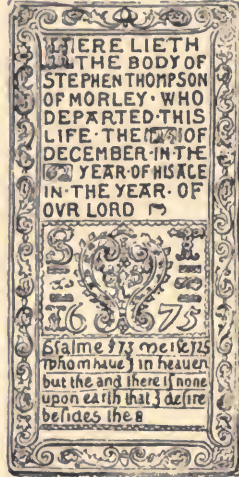 HERE LIETH
THE BODY OF
STEPHEN THOMPSON
OF MORLEY · WHO
DEPARTED · THIS
LIFE · THE OF
DECEMBER · IN · THE
YEAR · OF HIS AGE
IN · THE YEAR · OF
OVR LORD
S T
16 75
Psalme 73
Whom haue I in heauen
but the and there is none
upon earth that I desire
besides the